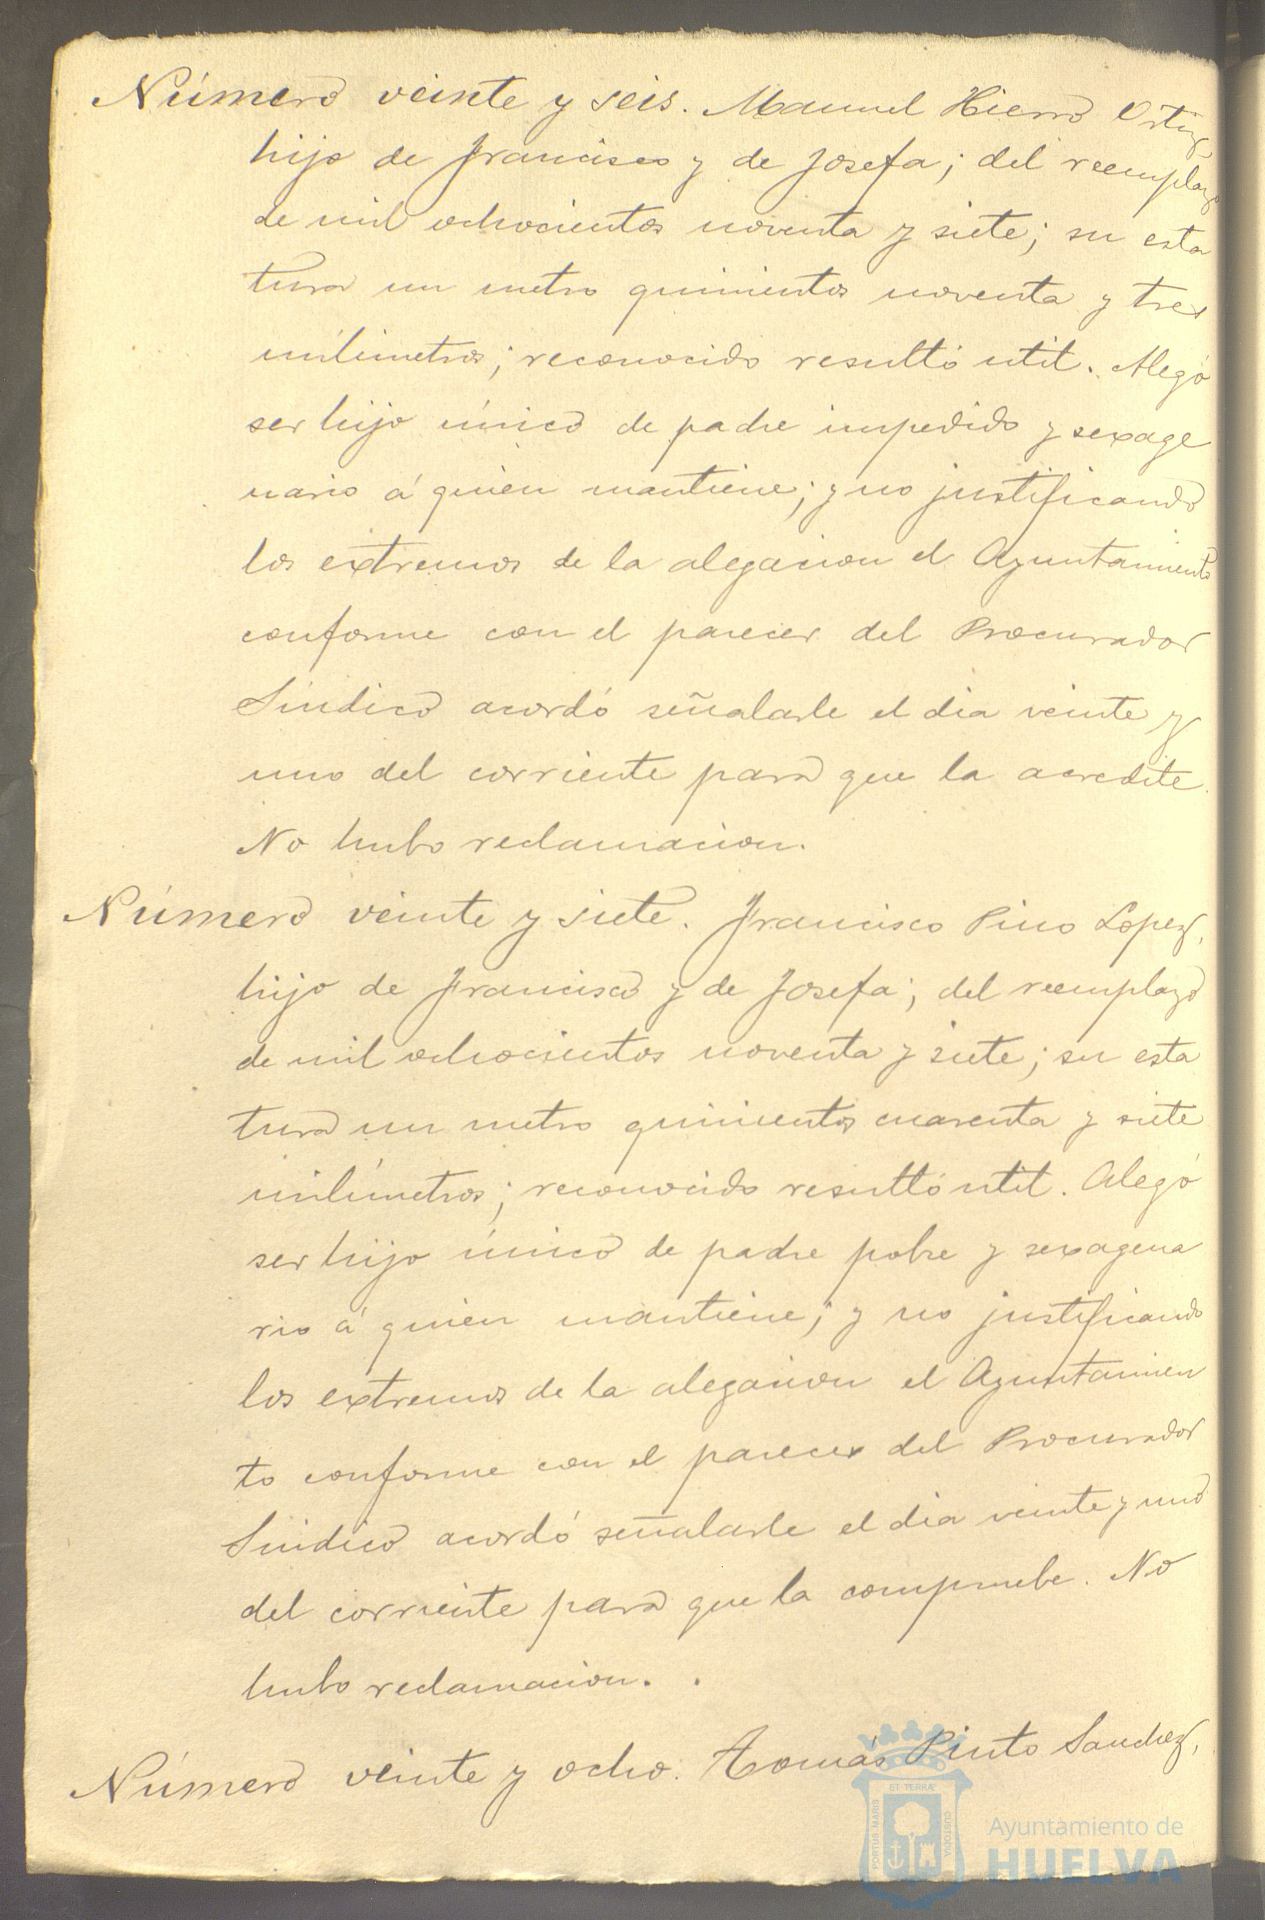 Número veinte y seis. Manuel Hierro Ortiz
hijo de Francisco y de Josefa; del reemplazo
de mil ochocientos noventa y siete; su esta
tura un metro quinientos noventa y tres
milimetros; reconocido resultó util. Alegó
ser hijo único de padre impedido y sexage
nario á quien mantiene; y no justificando
los extremos de la alegacion el Ayuntamiento
conforme con el parecer del Procurador
Síndico acordó señalarle el dia veinte y
uno del corriente para que la acredite.
No hubo reclamacion.
Número veinte y siete. Francisco Pino Lopez,
hijo de Francisco y de Josefa; del reemplazo
de mil ochocientos noventa y siete; su esta
tura un metro quinientos cuarenta y siete
milímetros; reconocido resultó util. Alegó
ser hijo único de padre pobre y sexagena
rio á quien mantiene; y no justificando
los extremos de la alegacion el Ayuntamien
to conforme con el parecer del Procurador
Sindico acordó señalarle el dia veinte y uno
del corriente para que la compruebe. No
hubo reclamacion.
Número veinte y ocho. Tomás Pinto Sanchez,
PORTUS MARIS ET TERRÆ CUSTODIA
Ayuntamiento de
HUELVA